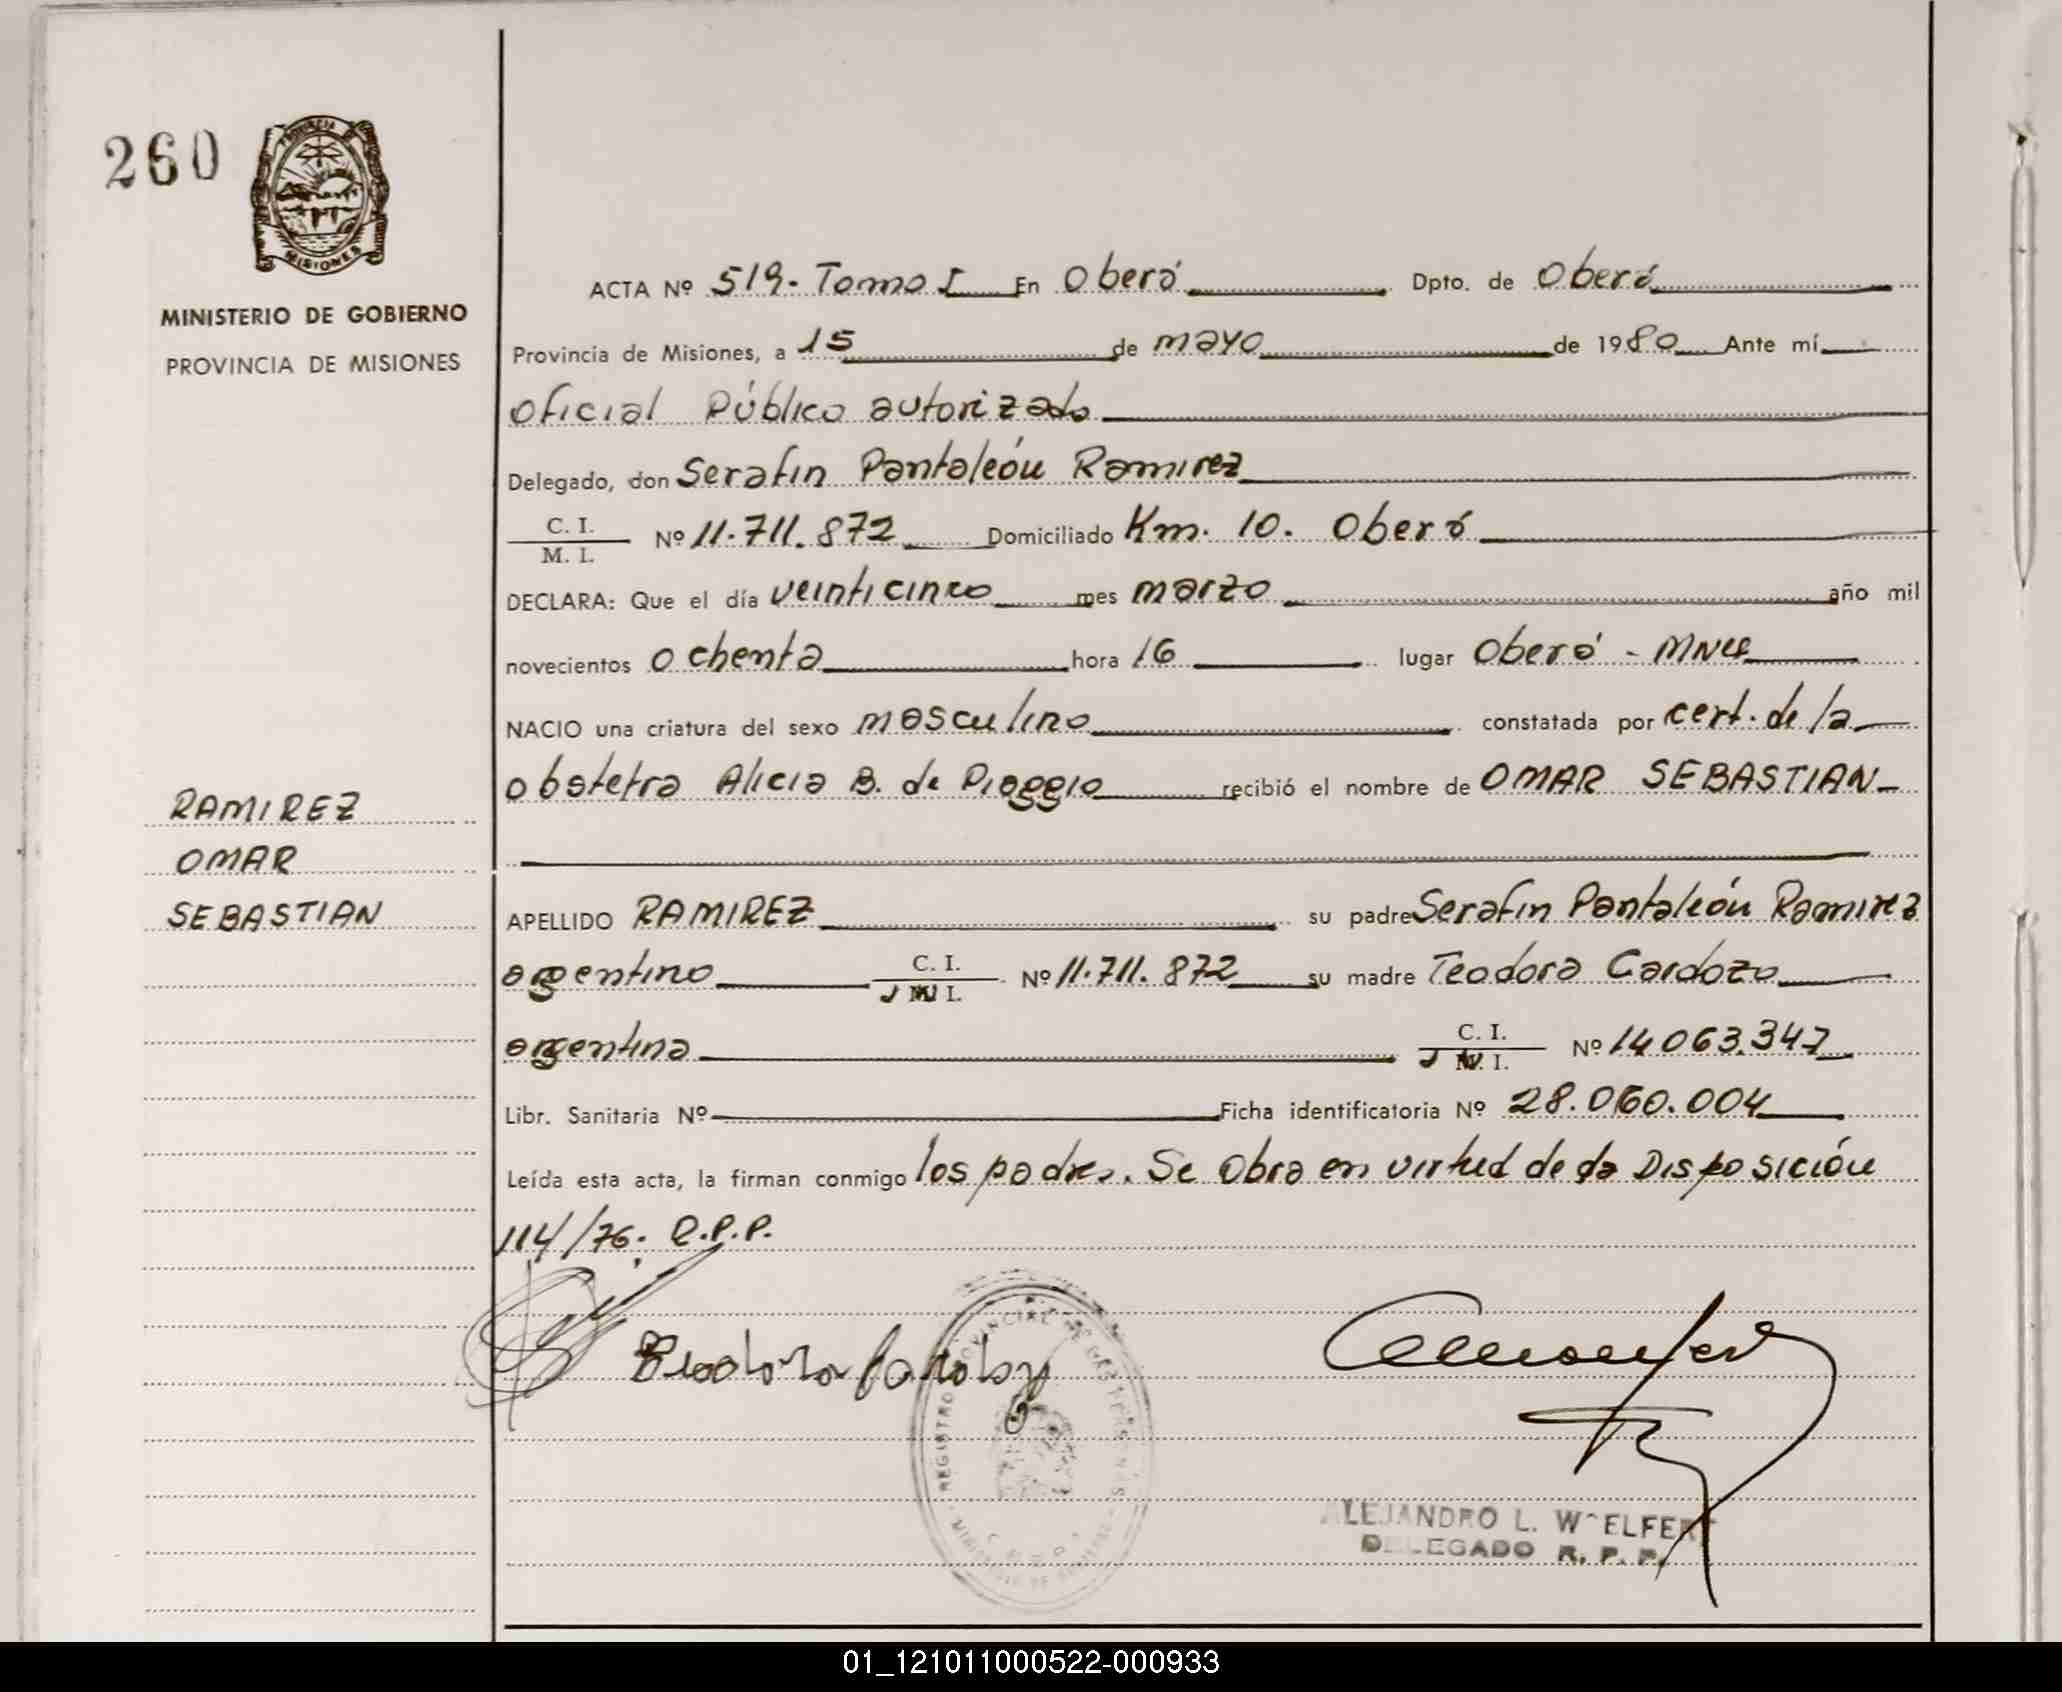 260
PROVINCIA DE
MISIONES
MINISTERIO DE GOBIERNO
PROVINCIA DE MISIONES
RAMIREZ
OMAR
SEBASTIAN
ACTA Nº 519- Tomo I En Oberá Dpto. de Oberá
Provincia de Misiones, a 15 de mayo de 1980 Ante mí
Oficial Público autorizado
Delegado, don Serafin Pantaleón Ramirez
C. I.
M. I. Nº 11.711.872 Domiciliado Km. 10. Oberá
DECLARA: Que el día veinticinco mes marzo año mil
novecientos ochenta hora 16 lugar Oberá - Mnes
NACIO una criatura del sexo masculino constatada por cert. de la
obstetra Alicia B. de Piaggio recibió el nombre de OMAR SEBASTIAN
APELLIDO RAMIREZ su padre Serafin Pantaleón Ramirez
argentino C. I. Nº 11.711.872 su madre Teodora Cardozo
argentina C. I. Nº 14.063.347
Libr. Sanitaria Nº Ficha identificatoria Nº 28.060.004
Leída esta acta, la firman conmigo los padres. Se Obra en virtud de la Disposición
114/76. R.P.P.
REGISTRO PROVINCIAL DE LAS PERSONAS
ALEJANDRO L. WOELFERT
DELEGADO R. P. P.
01_121011000522-000933